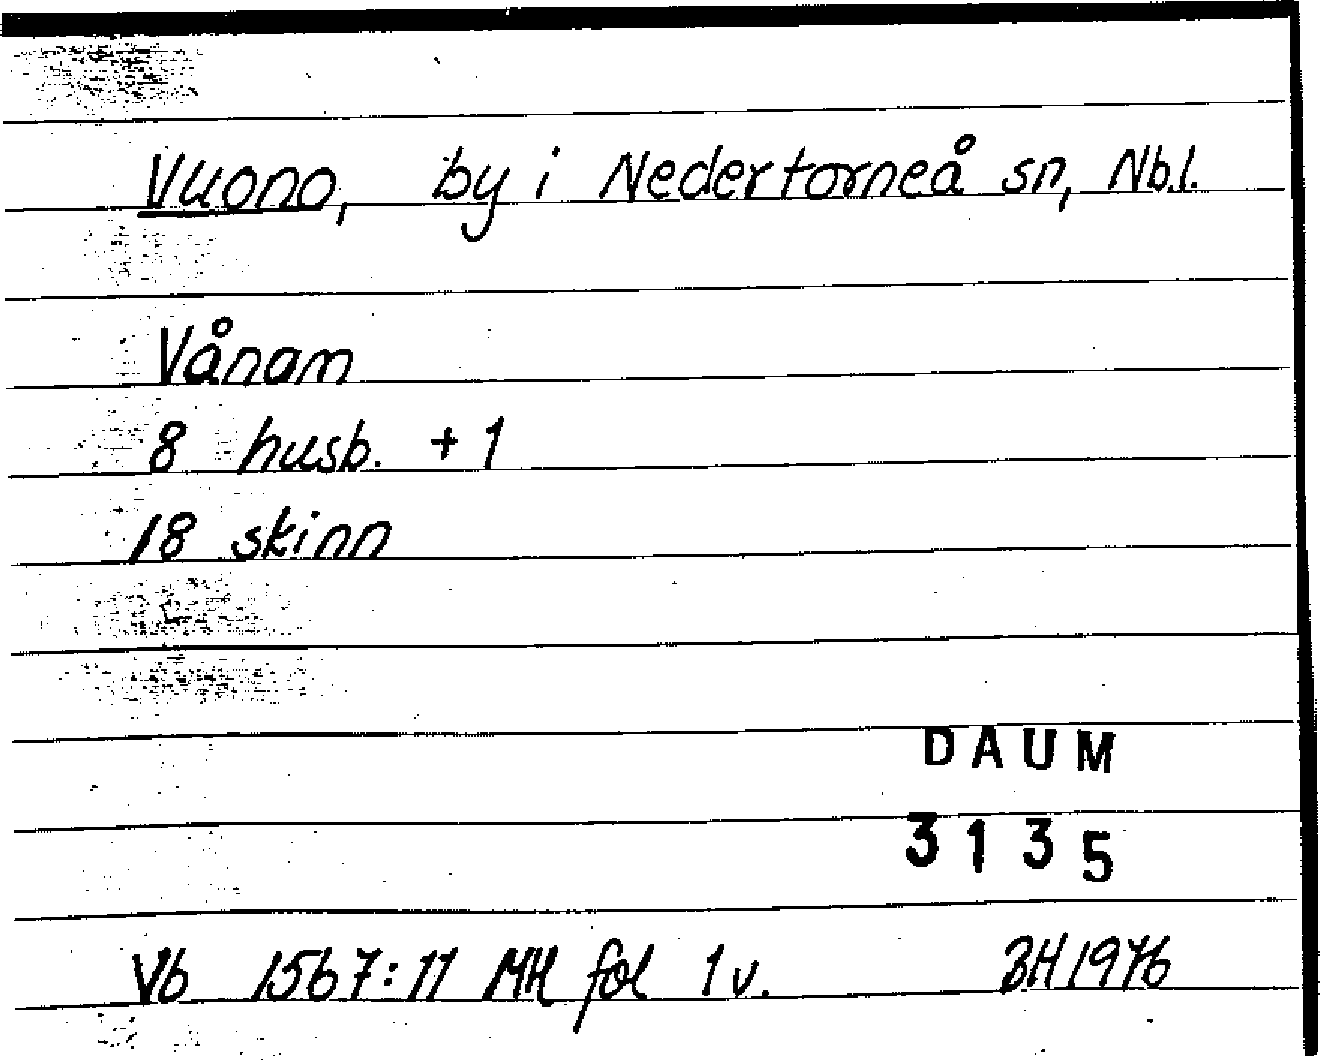 Vuono, by i Nedertorneå sn, Nb.l.
Vånam
8 husb. + 1
18 skinn
DAUM
3135
Vb 1567:11 MH fol 1v. BH 1976